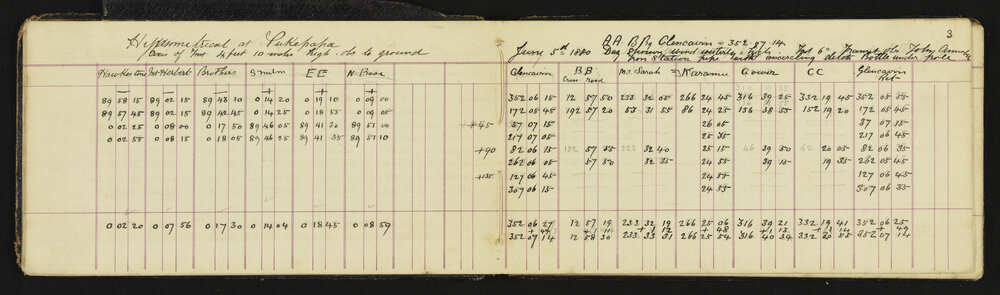 Hypsometrical at Pukepapa
Axis of Inst 4 feet 10 inches high. obs to ground
Hawkestone Mt Herbert Brothers Smilm EE N. Base
— — — + + +
89 58 15 89 02 15 89 43 10 0 14 20 0 19 10 0 09 00
89 57 45 89 02 15 89 42 45 0 14 25 0 18 55 0 09 05
0 02 25 0 08 00 0 17 50 89 46 05 89 41 30 89 51 00
0 02 55 0 08 15 0 18 05 89 46 25 89 41 35 89 51 10
0 02 20 0 07 56 0 17 30 0 14 04 0 18 45 0 08 59
3
AA Bg Glencairn = 352 07 14
June 5th 1880 Day Showery wind westerly, high. Inst 6"
Iron Station pipe earth encircling ditch Bottle under pole
Glencairn BB Mt Sarah = Karamu Gower CC Glencairn
Cross road Ret
352 06 15 12 57 50 233 32 05 266 24 45 316 39 25 332 19 45 352 05 55
172 05 45 192 57 20 53 31 55 86 24 25 136 38 55 152 19 20 172 05 45
+45 37 07 15 26 05 37 07 15
217 07 05 25 35 217 06 45
+90 82 06 15 102 57 35 322 32 40 25 15 46 39 50 62 20 05 82 06 35
262 06 05 57 50 32 35 24 55 39 15 19 35 262 05 45
+135 127 06 45 24 55 127 06 45
307 06 15 24 35 307 06 35
352 06 27 12 57 19 233 32 19 266 25 06 316 39 21 332 19 41 352 06 25
+ 47 + 1 11 + 1 12 + 48 + 1 13 + 1 14 + 49
352 07 14 12 58 30 233 33 31 266 25 54 316 40 34 332 20 55 352 07 14